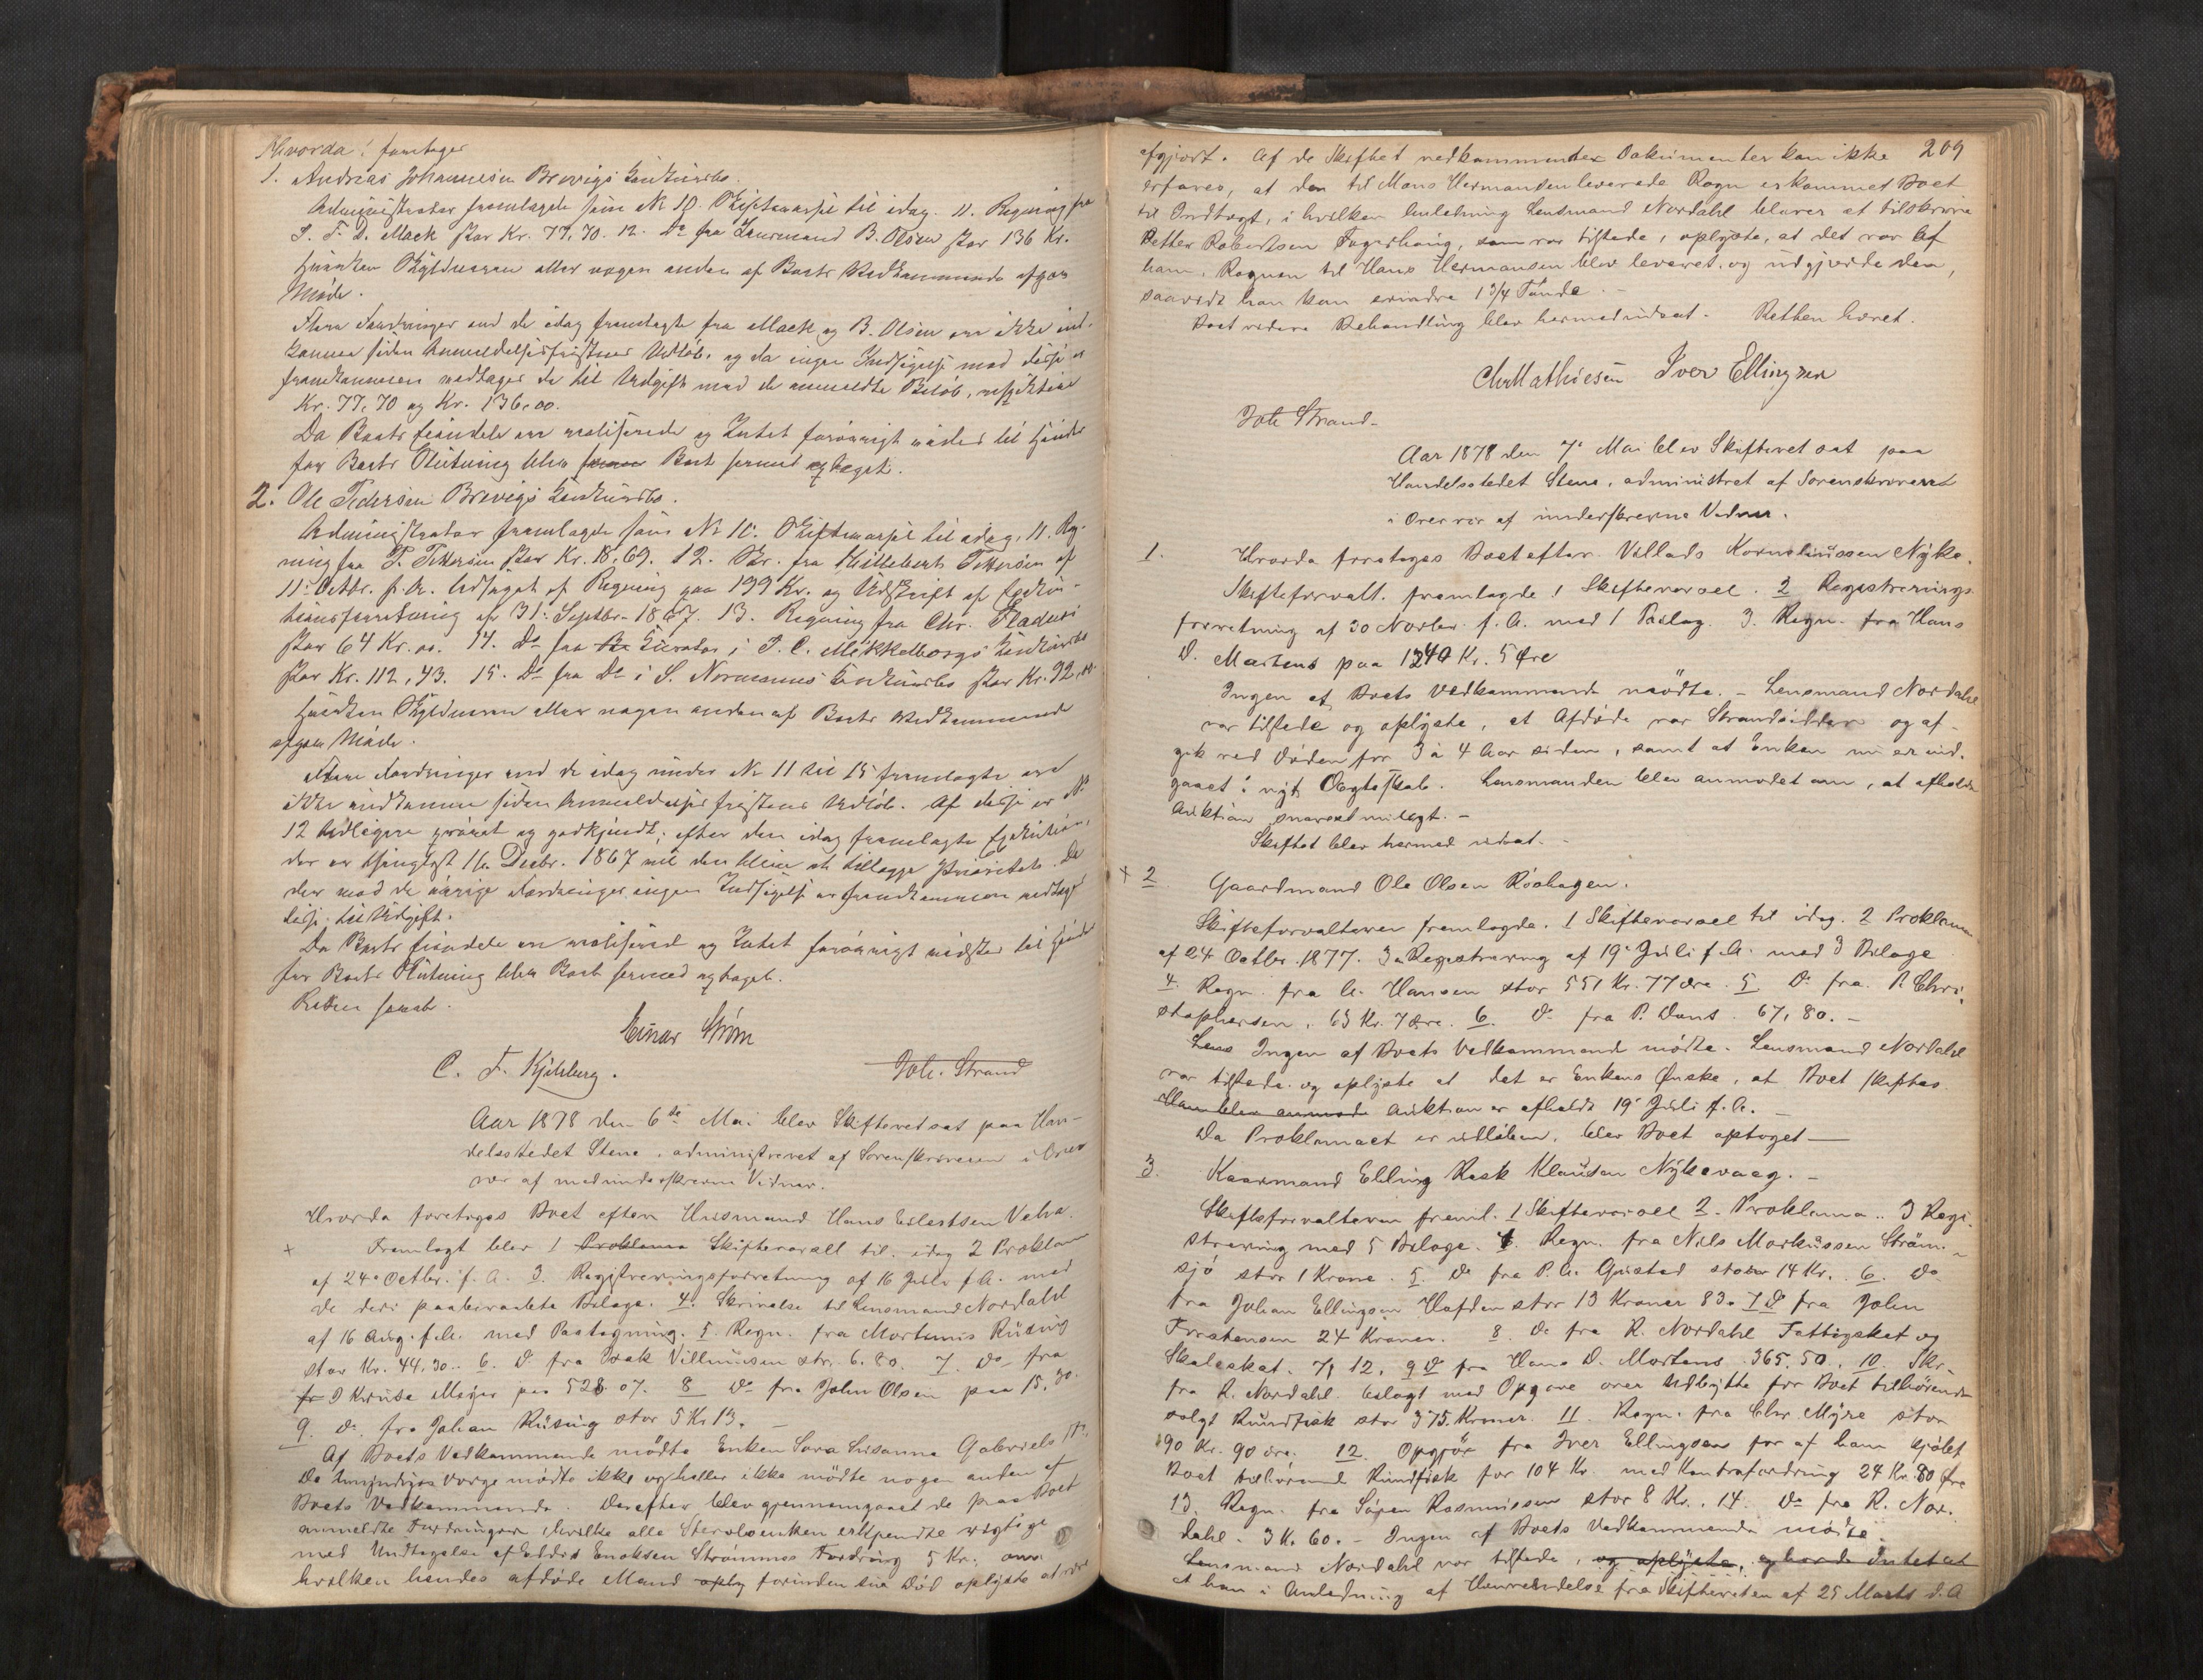 Hvorda: foretages
1. Andreas Johannesen Brevigs Konkursbo.
Administrator fremlagde som No 10. Skiftevarsel til idag. 11. Regning fra
L. F. D. Mack stor Kr. 77,70. 12. Do fra Lensmand B. Olsen stor 136 Kr.
Hverken Skyldneren eller nogen anden af Boets Vedkommende afgav
Møde.
Flere Fordringer end de idag fremlagte fra Mack og B. Olsen ere ikke ind-
komne siden Anmeldelsesfristens Udløb, og da ingen Indsigelse mod disse er
fremkommen medtages de til Udgift med de anmeldte Beløb, respektive
Kr. 77,70 og Kr. 136,00.
Da Boets Eiendele ere realiserede og Intet forøvrigt vides til Hinder
for Boets Slutning blev Boet hermed optaget.
2. Ole Pedersen Brevigs Konkursbo.
Administrator fremlagde som No 10. Skiftevarsel til idag, 11. Reg-
ning fra P. Pettersen stor Kr. 18,69. 12. Skr. fra Hillebert Pettersen af
11te Octbr. f. A. ledsaget af Regning paa 199 Kr. og Udskrift af Exeku-
tionsforretning af 31te Septbr. 1867. 13. Regning fra Chr. Fladeni
stor 64 Kr. 00. 14. Do fra Curator i J. C. Mikkelborgs Konkursbo
stor Kr. 112,43. 15. Do fra Do i S. Normanns Konkursbo stor Kr. 92,
Hverken Skyldneren eller nogen anden af Boets Vedkommende
afgav Møde.
Flere Fordringer end de idag under No 11 til 15 fremlagte ere
ikke indkomne siden Anmeldelsesfristens Udløb. Af disse er No
12 tidligere prøvet og godkjendt; efter den idag fremlagte Exekution,
der er thinglyst 16 Decbr. 1867 vil den blive at tillægge Prioritet. Da
der mod de øvrige Fordringer ingen Indsigelse er fremkommen medtages
disse til Udgift.
Da Boets Eiendele ere realiserede og Intet forøvrigt vides til Hinder
for Boets Slutning blev Boet hermed optaget.
Retten hævet.
Einar Strøm
C. F. Kjelberg. Joh. Strand
Aar 1878 den 6te Mai blev Skifteret sat paa Han-
delsstedet Stene, administreret af Sorenskriveren i Over
vær af medunderskrevne Vidner.
Hvorda foretoges Boet efter Husmand Hans Eilertsen Vetra.
x Fremlagt blev 1 Proklama Skiftevarsel til idag 2 Proklam
af 24de Octbr. f. A. 3. Registreringsforretning af 16 Juli f. A. med
de deri paaberaabte Bilage. 4. Skrivelse til Lensmand Nordahl
af 16 Aug. f. A. med Paategning. 5 Regn. fra Mortinus Rusnig
stor Kr. 44,30.. 6. Do fra Isak Villumsen str. 6.80. 7. Do fra
fr D Kruse Meyer paa 528.07. 8 Do fra John Olsen paa 15,30.
9. Do fra Johan Rusnig stor 5 Kr 13. —
Af Boets Vedkommende mødte Enken Sara Susanna Gabriels
De Umyndiges Værge mødte ikke og heller ikke mødte nogen anden af
Boets Vedkommende. Derefter blev gjennemgaaet de paa Boet
anmeldte Fordringer, hvilke alle Sterboenken erkjendte rigtige
med Undtagelse af Enoksen Strømmes Fordring 5 Kr. om
hvilken hendes afdøde Mand oply forinden sin Død oplyste at være
209
afgjort. Af de Skiftet vedkommende Dokumenter kan ikke
erfares, at den til Hans Hermansen leverede Rogn er kommet Boet
til Indtægt, i hvilken Anledning Lensmand Nordahl bliver at tilskrive
Petter Robertsen Fagerhaug, som var tilstede, oplyste, at det var af
ham, Rognen til Hans Hermansen blev leveret, og udgjorde den,
saavidt han kan erindre 1 3/4 Tønde. —
Boet videre Behandling blev hermed udsat. Retten hævet.
Chr Mathiesen Iver Ellingsen
Joh Strand
Aar 1878 den 7de Mai blev Skifteret sat paa
Handelsstedet Stene, administret af Sorenskriveren
i Overvær af underskrevne Vidner.
1. Hvorda foretoges Boet efter Villads Kornelinssen Nyke.
Skifteforvalt. fremlagde 1 Skiftevarsel. 2 Registrerings-
forretning af 30 Novbr. f. A. med 1 Bilag. 3. Regn. fra Hans
D. Martens paa 1240 Kr. 5 Øre
Ingen af Boets Vedkommende mødte. – Lensmand Nordahl
var tilstede og oplyste, at Afdøde var Strandsidder og af-
gik ved Døden for 3 à 4 Aar siden, samt at Enken nu er ind-
gaaet i nyt Ægteskab. Lensmanden blev anmodet om, at afholde
Auktion snarest muligt. –
Skiftet blev hermed udsat. –
x 2 Gaardmand Ole Olsen Roshagen.
Skifteforvalteren fremlagde. 1 Skiftevarsel til idag. 2 Proklama
af 24 Octbr. 1877. 3 Registrering af 19de Juli f. A. med 3 Bilage
4. Regn. fra A. Hansen stor 551 Kr. 77 Øre. 5. Do fra P. Chri-
stophersen, 63 Kr. 7 Øre. 6. Do fra P. Dons 67,80. –
Lens Ingen af Boets Vedkommende mødte. Lensmand Nordahl
var tilstede og oplyste at det er Enkens Ønske, at Boet skiftes.
Han blev anmode Auktion er afholdt 19de Juli f. A. –
Da Proklamaet er udløben, blev Boet optaget —
3. Kaarmand Elling Rask Klausen Nykevaag. –
Skifteforvalteren freml. 1 Skiftevarsel 2. Proklama.. 3 Regi-
strering med 5 Bilage. 4. Regn. fra Nils Markussen Strøm-
sjø stor 1 Krone. 5. Do fra P. A. Qustad stor 14 Kr. 6. Do
fra Johan Ellingsen Hafden stor 13 Kroner 83. 7 Do fra John
Torstensen 24 Kroner. 8. Do fra R. Nordahl Fattigskat og
Skoleskat. 7, 12. 9 Do fra Hans D. Mortens 365,50. 10. Skr.
fra R. Nordahl bilagt med Opgave over Udbytte for Boet tilhørende
solgt Rundfisk stor 375 Kroner. 11. Regn. fra Chr. Myre stor
90 Kr. 90 Øre. 12. Opgjør fra Iver Ellingsen for af ham kjøbt
Boet tilhørende Rundfisk for 104 Kr. med Kontrafordring 24 Kr. 80 Øre
13. Regn. fra Søren Rasmussen stor 8 Kr. 14. Do fra R. Nor-
dahl. 3 K. 60. – Ingen af Boets Vedkommende mødte.
Lensmand Nordahl var tilstede, og oplyste, og havde Intet at
at han i Anledning af Henvendelse fra Skifteretten af 25 Marts d. A